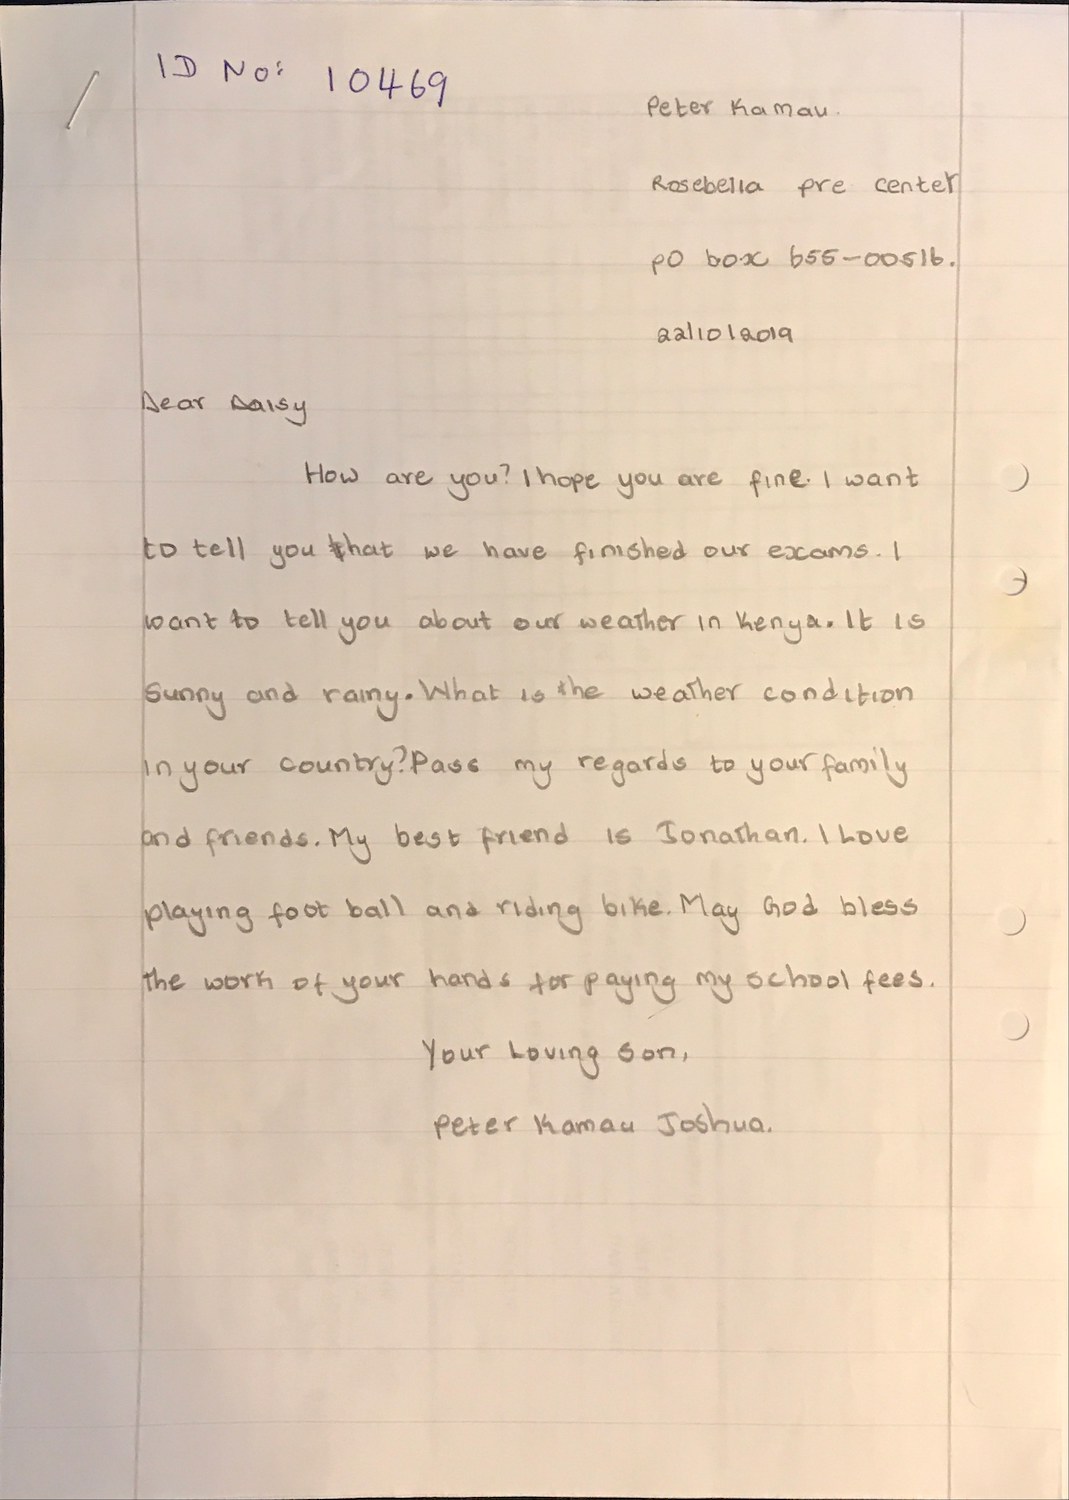 ID No: 10469
Peter Kamau.
Rosebella pre center
PO box 655-00516.
22/10/2019
Dear Daisy
How are you? I hope you are fine. I want
to tell you that we have finished our exams. I
want to tell you about our weather in Kenya. It is
Sunny and rainy. What is the weather condition
in your country? Pass my regards to your family
and friends. My best friend is Jonathan. I Love
playing foot ball and riding bike. May God bless
the work of your hands for paying my school fees.
Your Loving Son,
Peter Kamau Joshua.